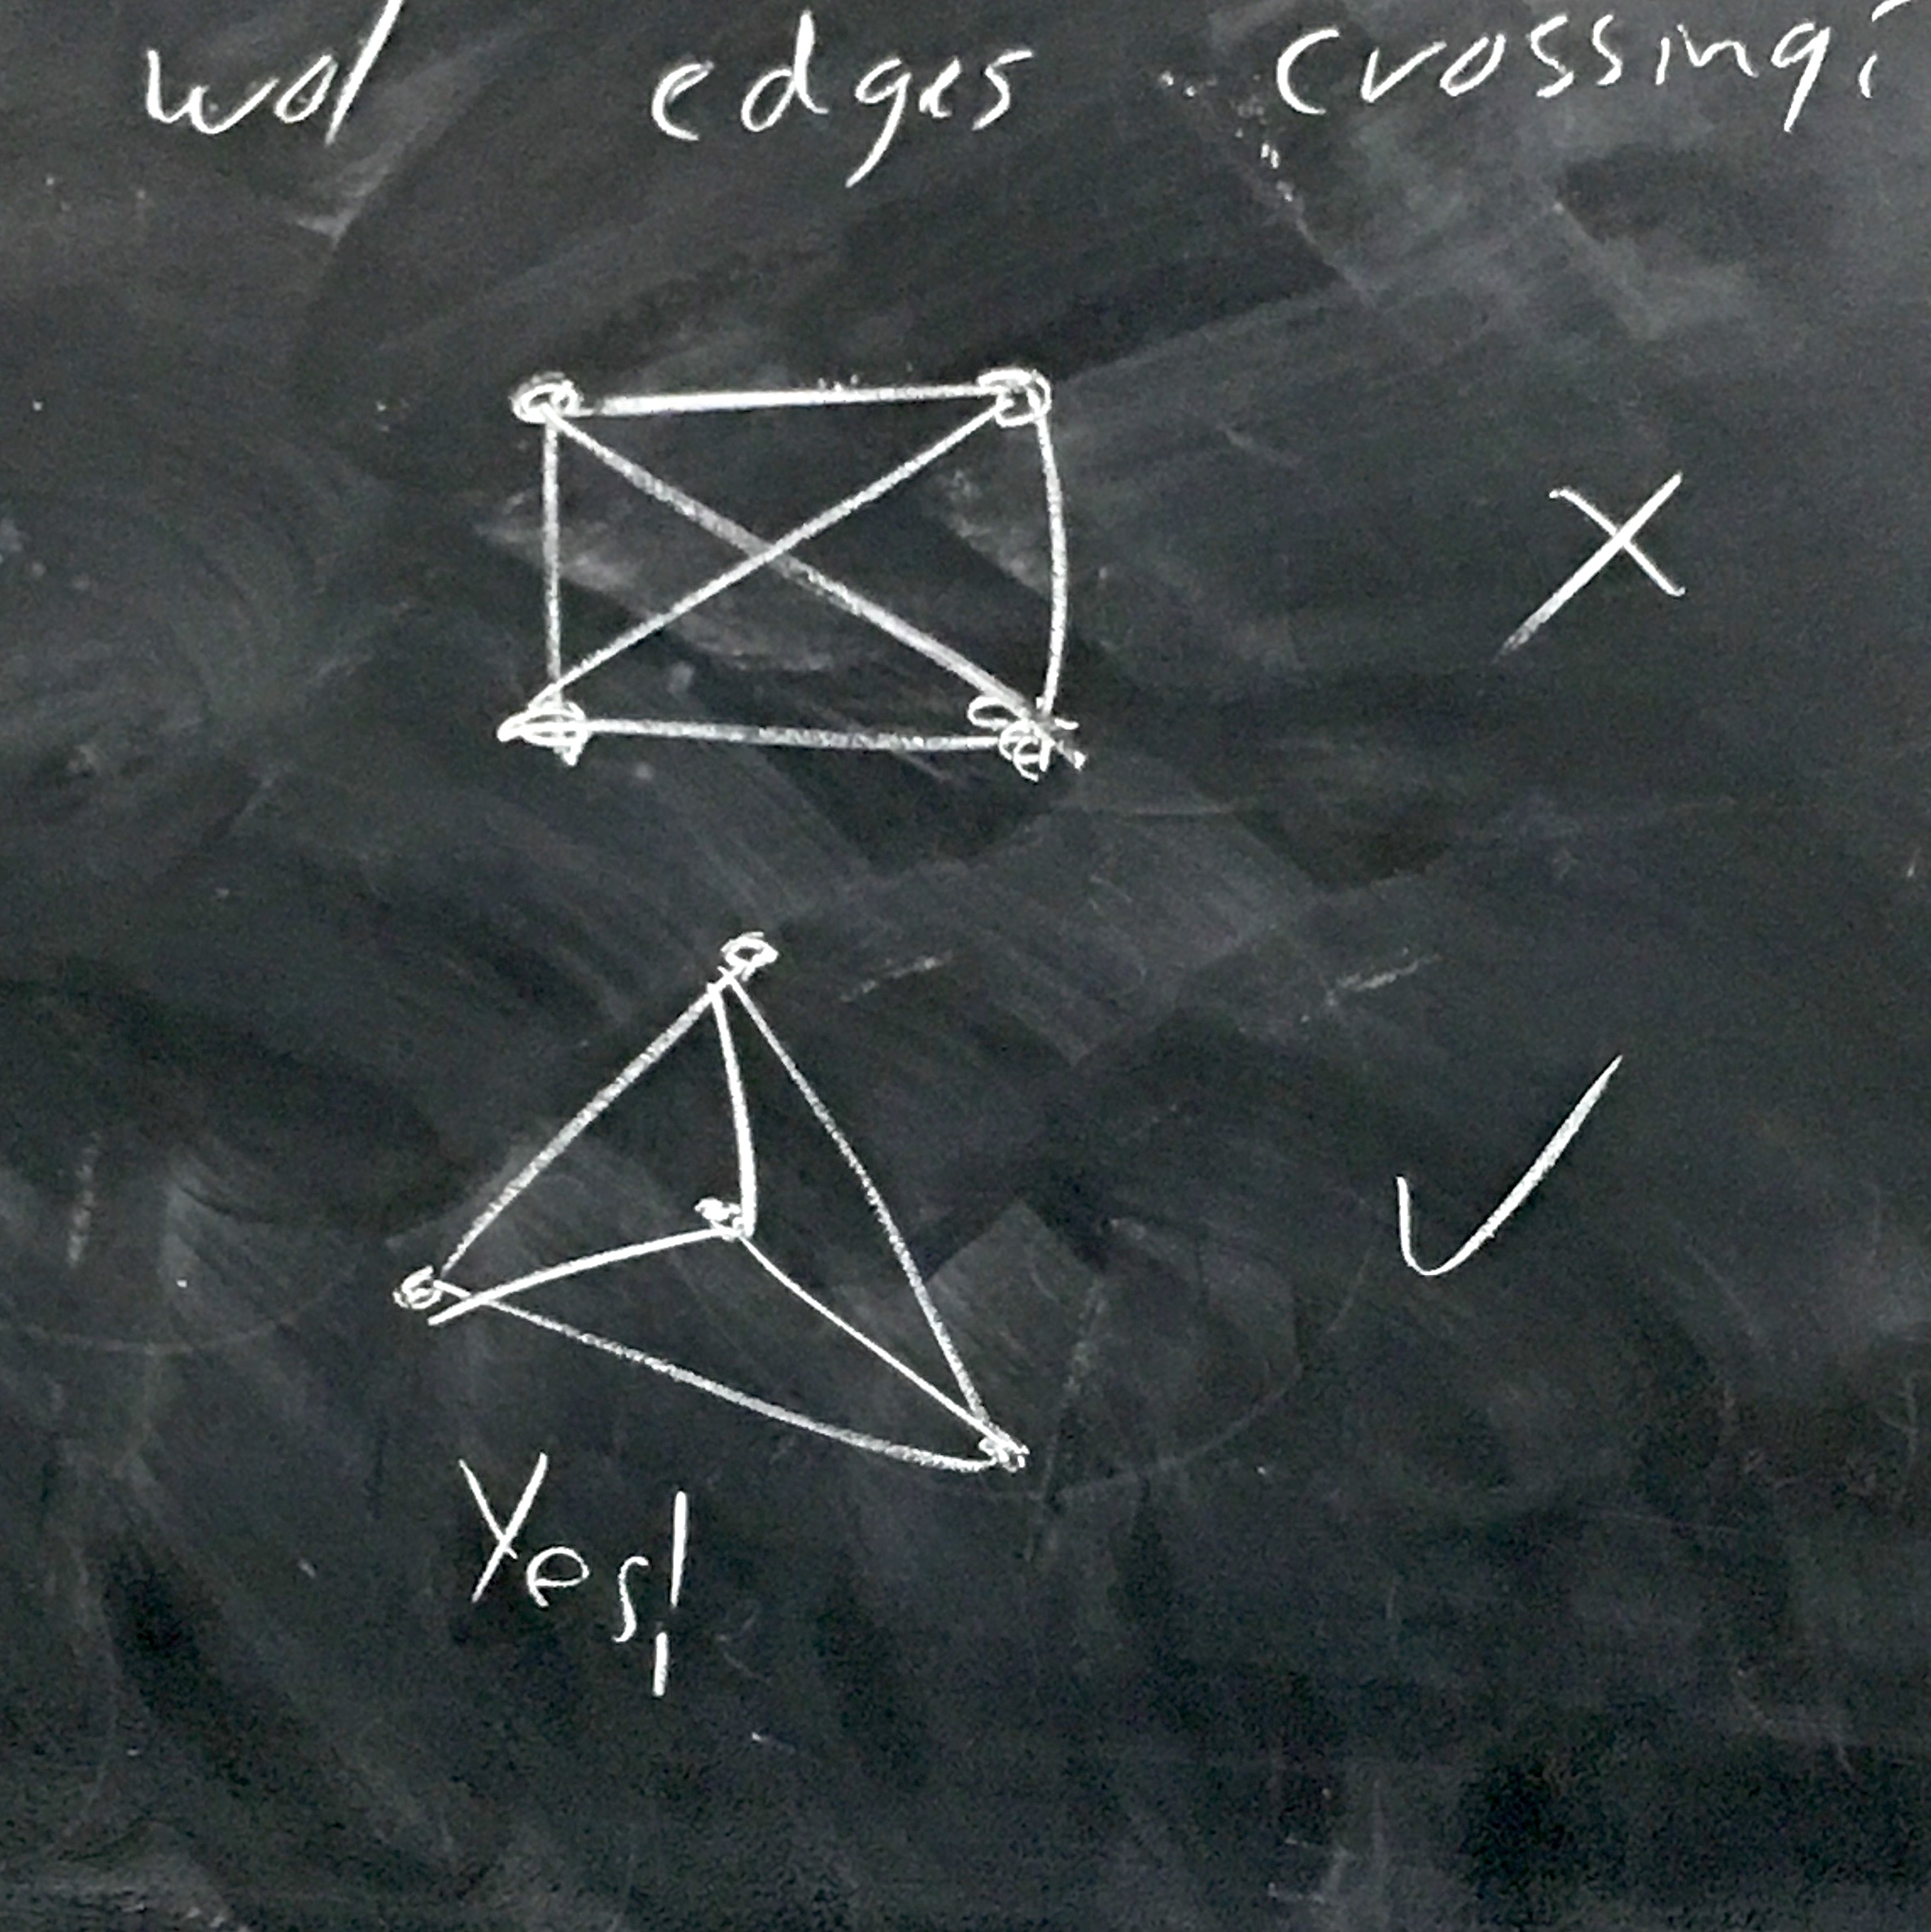 wo/ edges crossing?
X
✓
Yes!